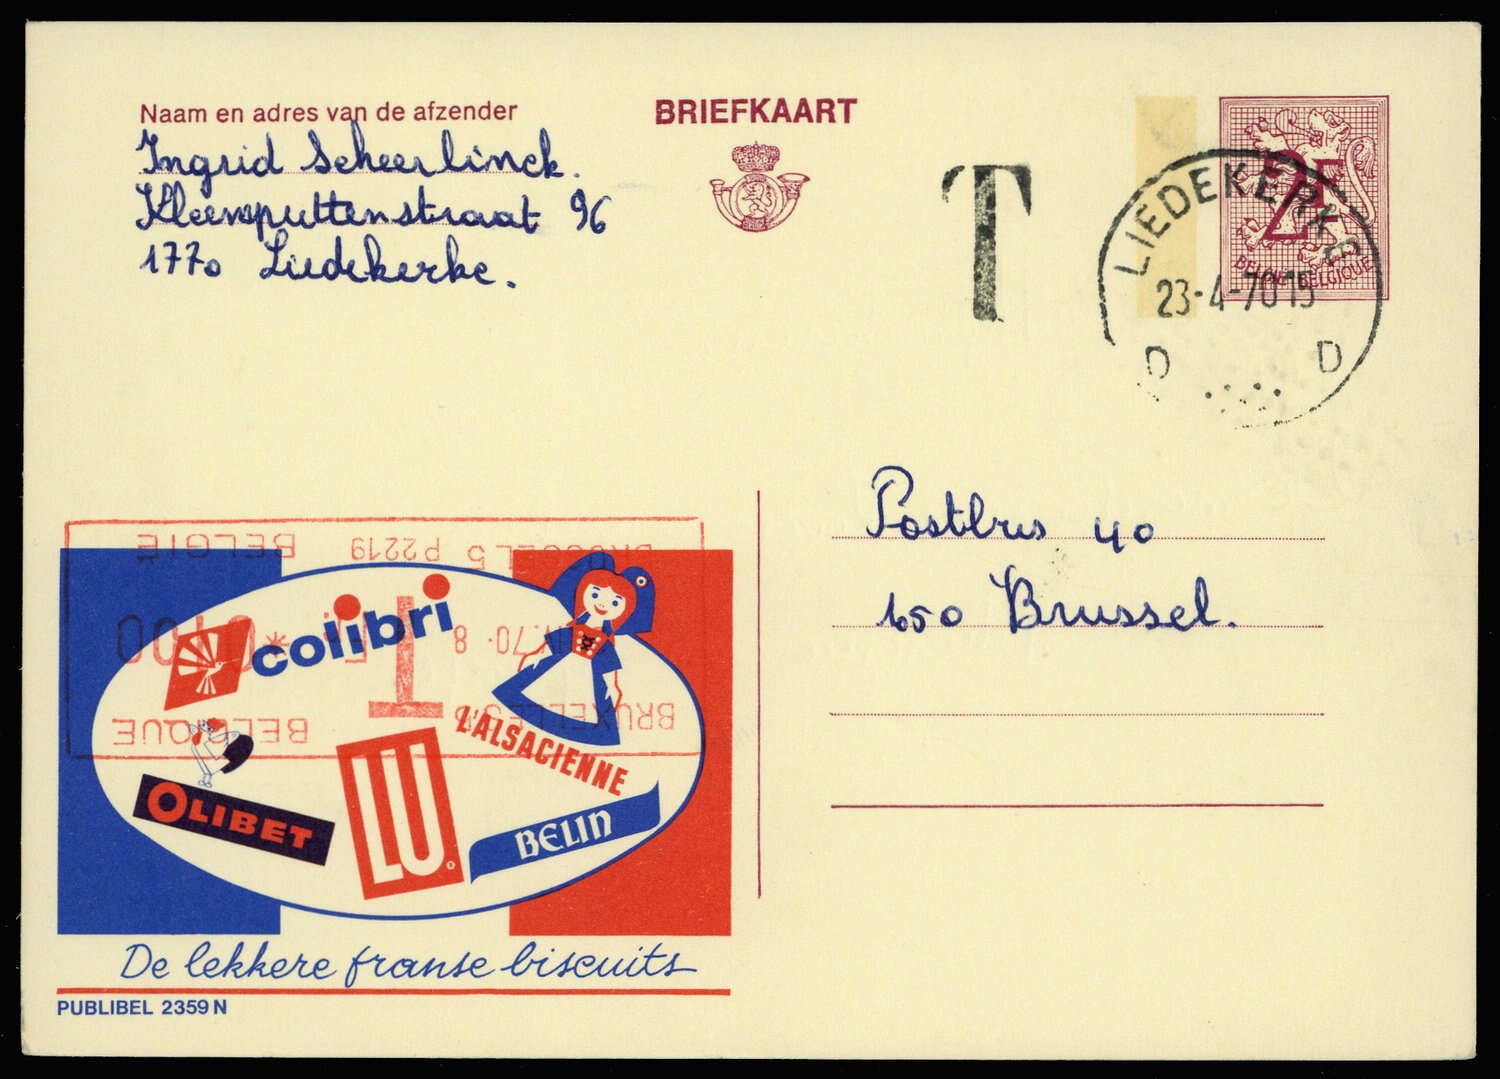 Naam en adres van de afzender
Ingrid Scheerlinck.
Kleemputtenstraat 96
1770 Liedekerke.
BRIEFKAART
T
2F
BELGIË-BELGIQUE
LIEDEKERKE
23-4-70 15
D D
Postbus 40
1050 Brussel.
BRUSSEL 5 P2219 BELGIË
70. 8
T
BRUXELLES 5 BELGIQUE
colibri
L'ALSACIENNE
OLIBET
LU
BELIN
De lekkere franse biscuits
PUBLIBEL 2359 N